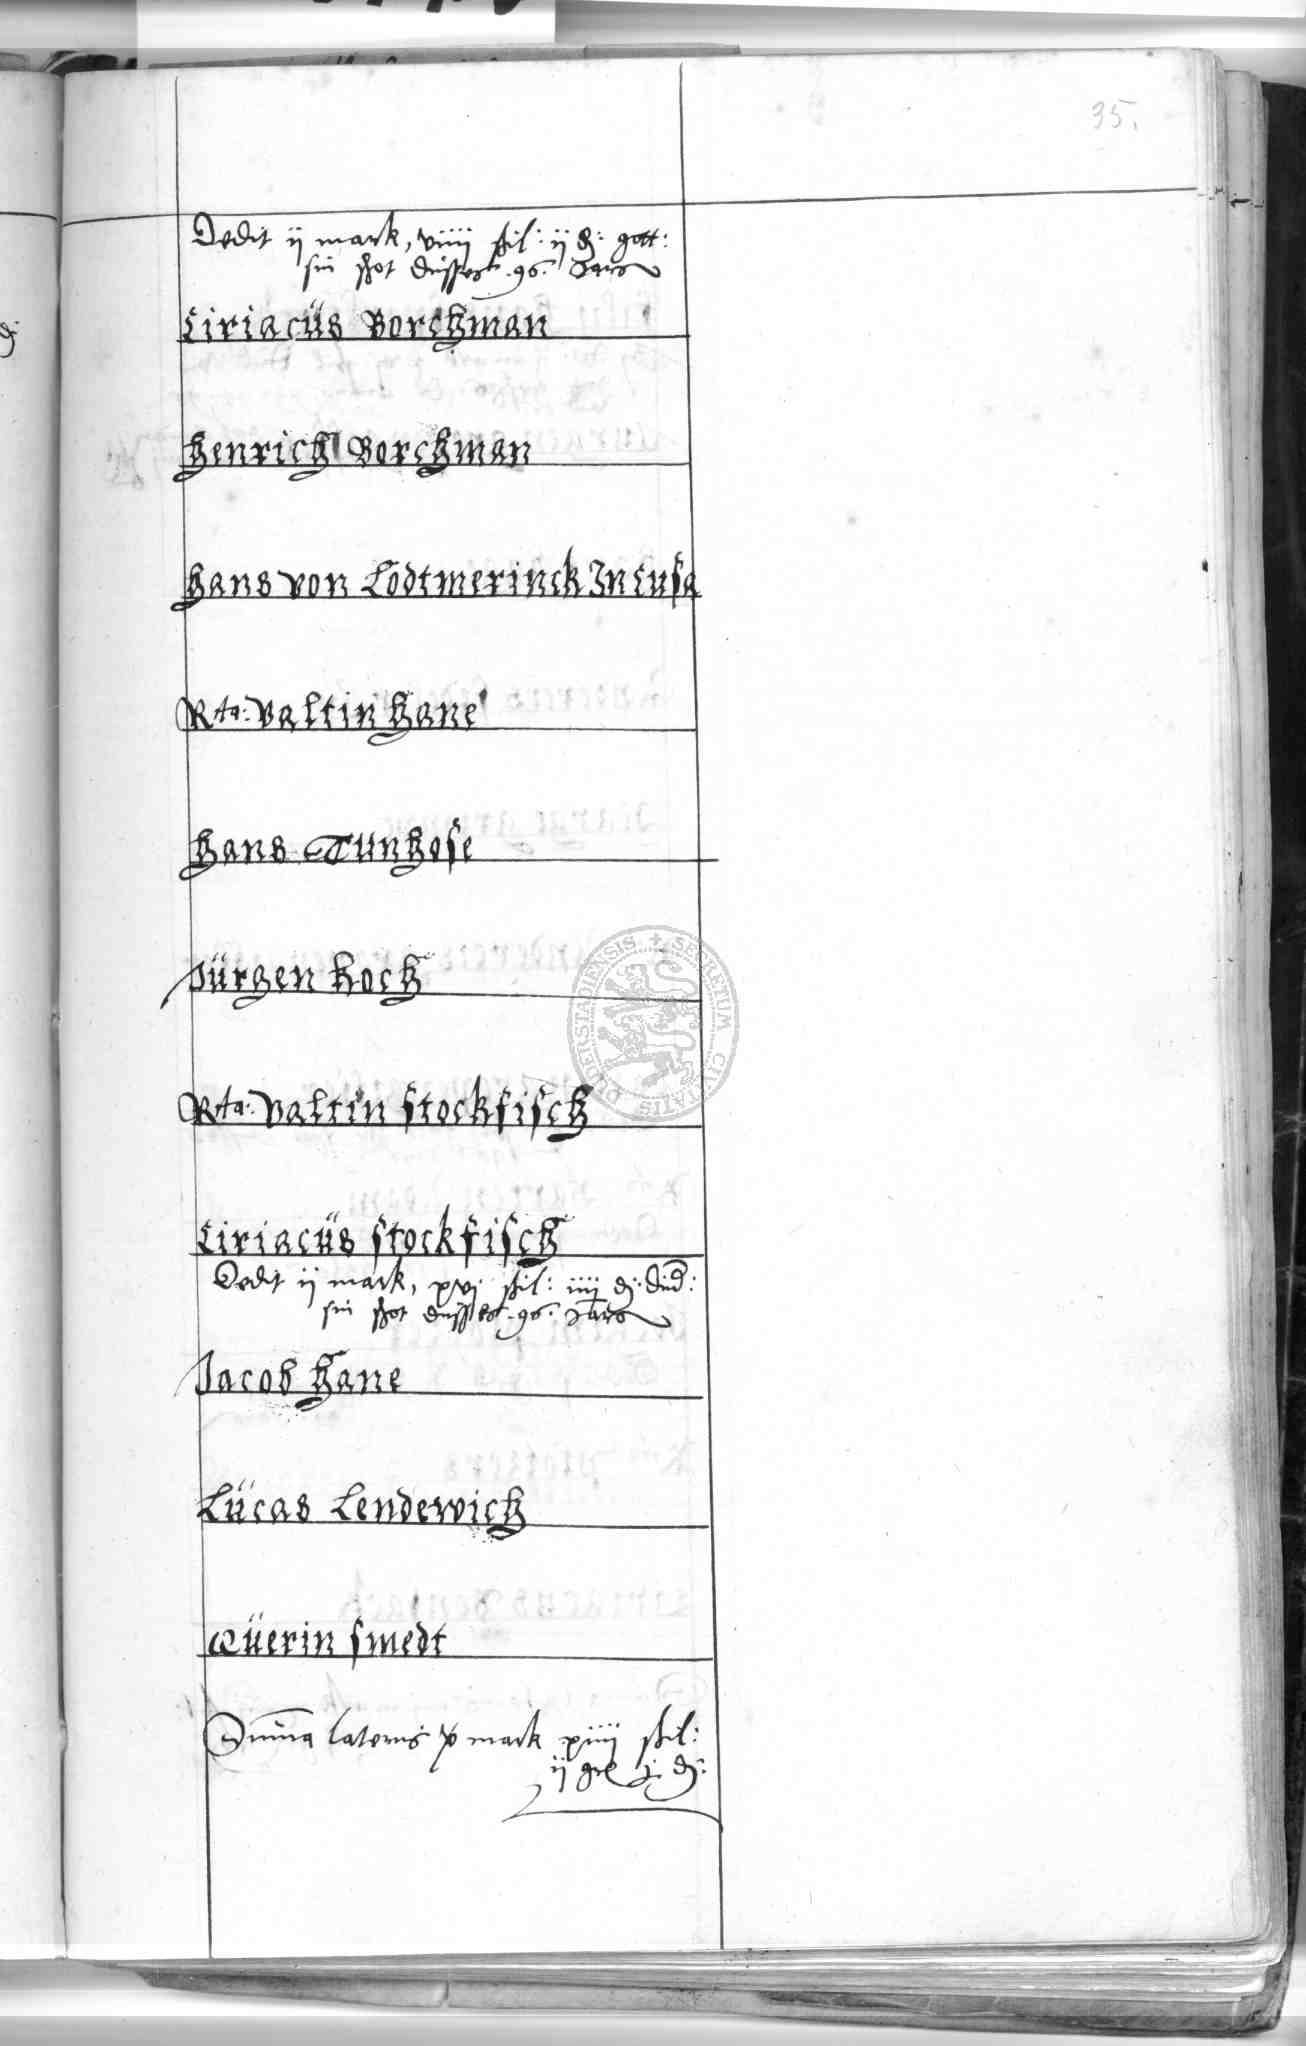 35.
Dedit ij mark, viiij ßil: ij ₰: gott:
sin schot dusses .96. Jars
Ciriacüs Borchman
Henrich Borchman
Hans von Lodtmerinck In Cusa
Rta: Valtin Hane
Hans Tunhose
Jürgen Koch
Rta: Valtin Stockfisch
Ciriacüs Stockfisch
Dedit ij mark, xvj ßil: iiij ₰:
sin schot dusses .96. Jars
Jacob Hane
Lücas Lendewich
Qüerin Smedt
Summa lateris mark xiiij ßil:
ij j ₰:
SECRETUM CIVITATIS DUDERSTADIENSIS